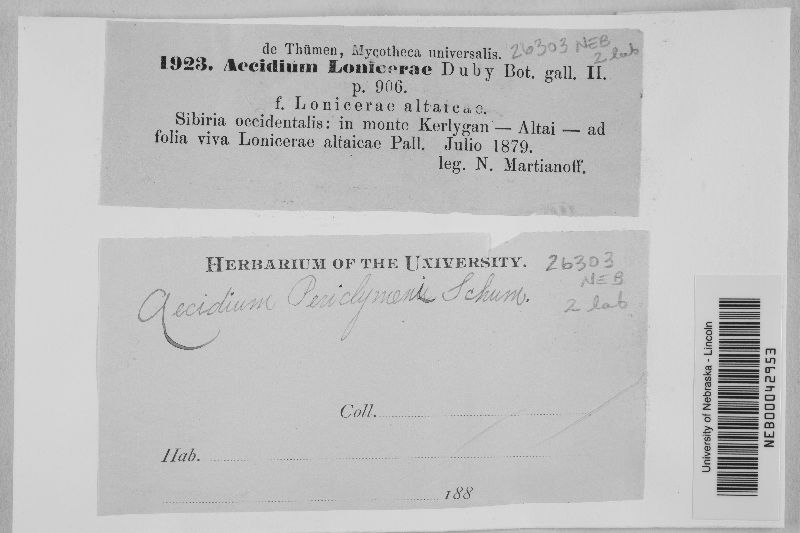 de Thümen, Mycotheca universalis. 26303 NEB
2 lab
1923. Aecidium Lonicerae Duby Bot. gall. II.
p. 906.
f. Lonicerae altaicae.
Sibiria occidentalis: in monte Kerlygan — Altai — ad
folia viva Lonicerae altaicae Pall. Julio 1879.
leg. N. Martianoff.
HERBARIUM OF THE UNIVERSITY. 26303
NEB
2 lab.
Aecidium Periclymeni Schum.
Coll.
Hab.
188
University of Nebraska - Lincoln
NEB00042953